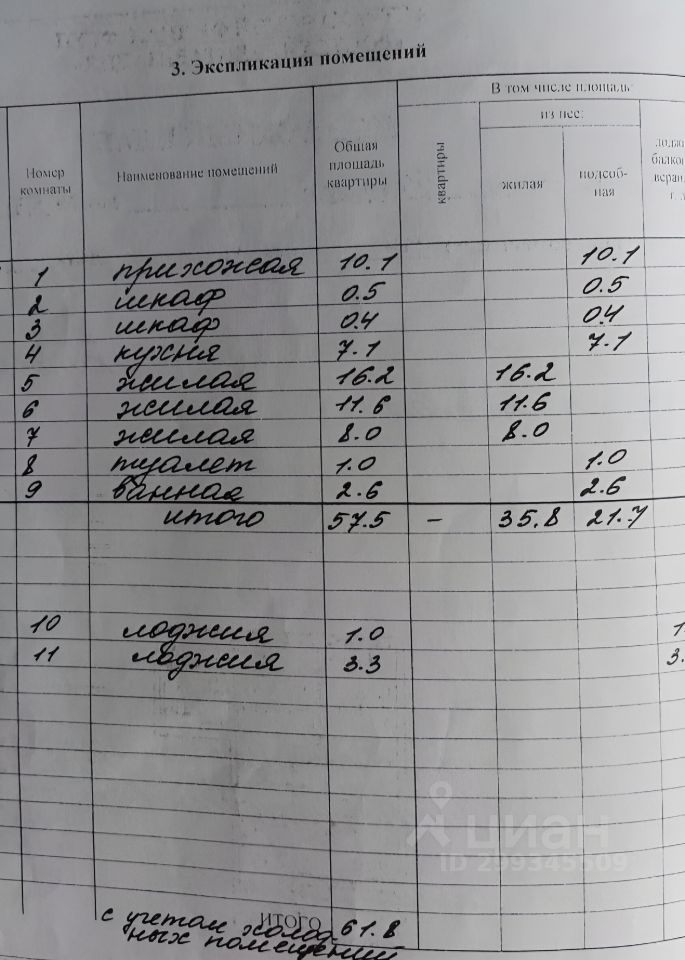 3. Экспликация помещений
В том числе площадь:
из нее:
Номер комнаты
Наименование помещений
Общая площадь квартиры
квартиры
жилая
подсоб-ная
1 прихожая 10.1 10.1
2 шкаф 0.5 0.5
3 шкаф 0.4 0.4
4 кухня 7.1 7.1
5 жилая 16.2 16.2
6 жилая 11.6 11.6
7 жилая 8.0 8.0
8 туалет 1.0 1.0
9 ванная 2.6 2.6
итого 57.5 - 35.8 21.7
10 лоджия 1.0 1.
11 лоджия 3.3 3.
ИТОГО 61.8
с учетом холод
ных помещений
циан
ID 299345509